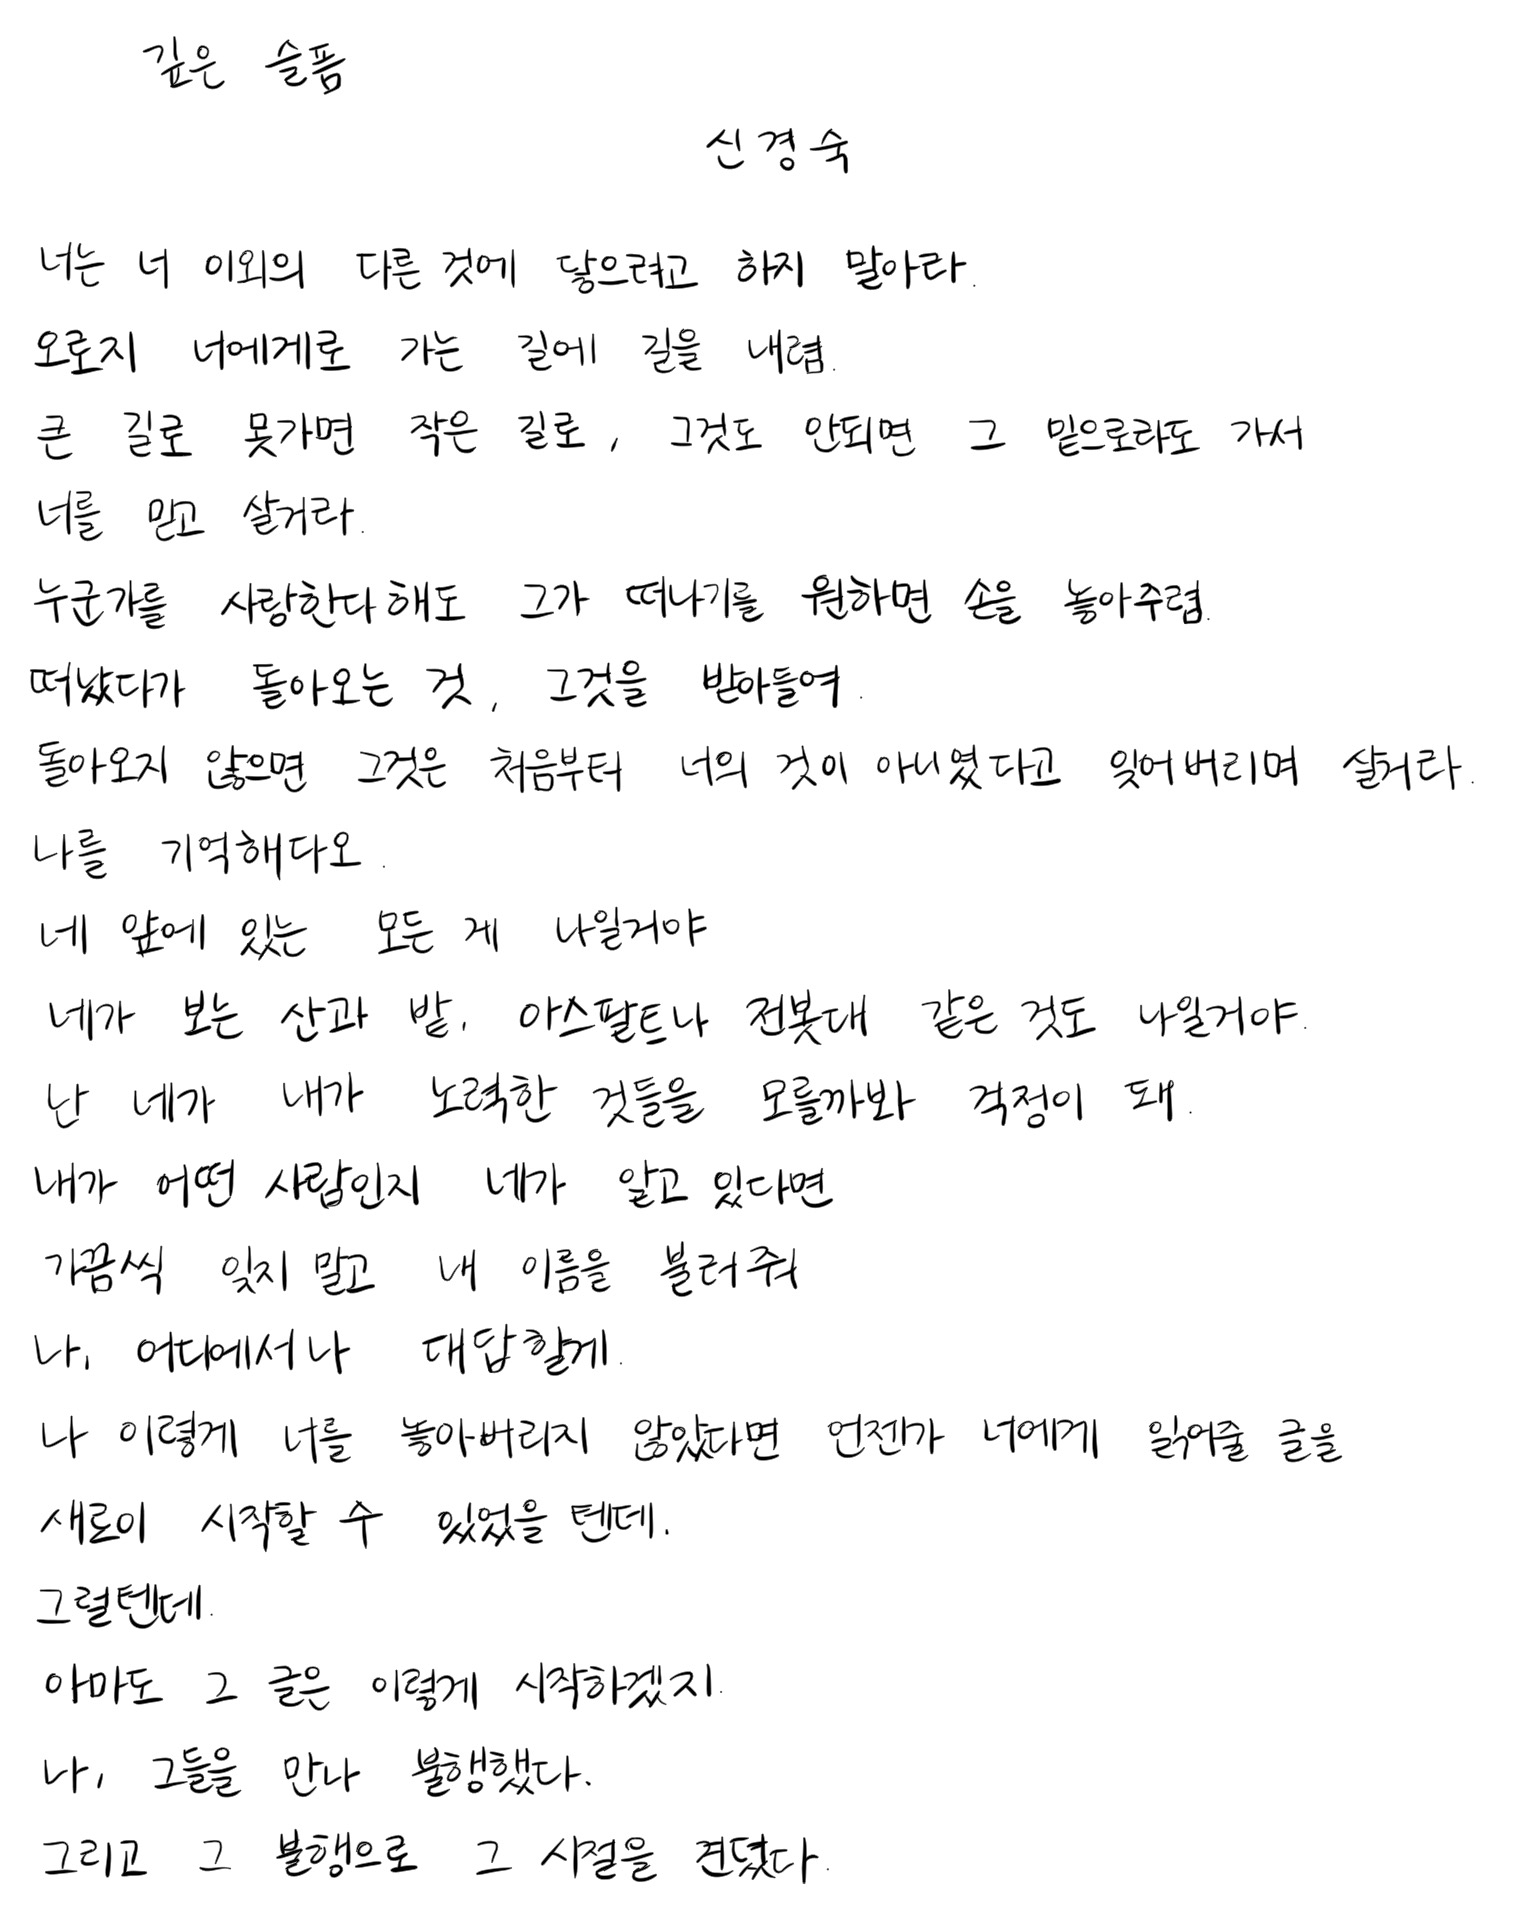 깊은 슬픔
신경숙
너는 너 이외의 다른 것에 닿으려고 하지 말아라.
오로지 너에게로 가는 길에 길을 내렴.
큰 길로 못가면 작은 길로, 그것도 안되면 그 밑으로라도 가서
너를 믿고 살거라.
누군가를 사랑한다해도 그가 떠나기를 원하면 손을 놓아주렴.
떠났다가 돌아오는 것, 그것을 받아들여.
돌아오지 않으면 그것은 처음부터 너의 것이 아니였다고 잊어버리며 살거라.
나를 기억해다오.
네 앞에 있는 모든 게 나일거야
네가 보는 산과 밭, 아스팔트나 전봇대 같은 것도 나일거야.
난 네가 내가 노력한 것들을 모를까봐 걱정이 돼.
내가 어떤 사람인지 네가 알고 있다면
가끔씩 잊지 말고 내 이름을 불러줘
나, 어디에서나 대답할게.
나 이렇게 너를 놓아버리지 않았다면 언젠가 너에게 읽어줄 글을
새로이 시작할 수 있었을 텐데.
그럴텐데.
아마도 그 글은 이렇게 시작하겠지.
나, 그들을 만나 불행했다.
그리고 그 불행으로 그 시절을 견뎠다.